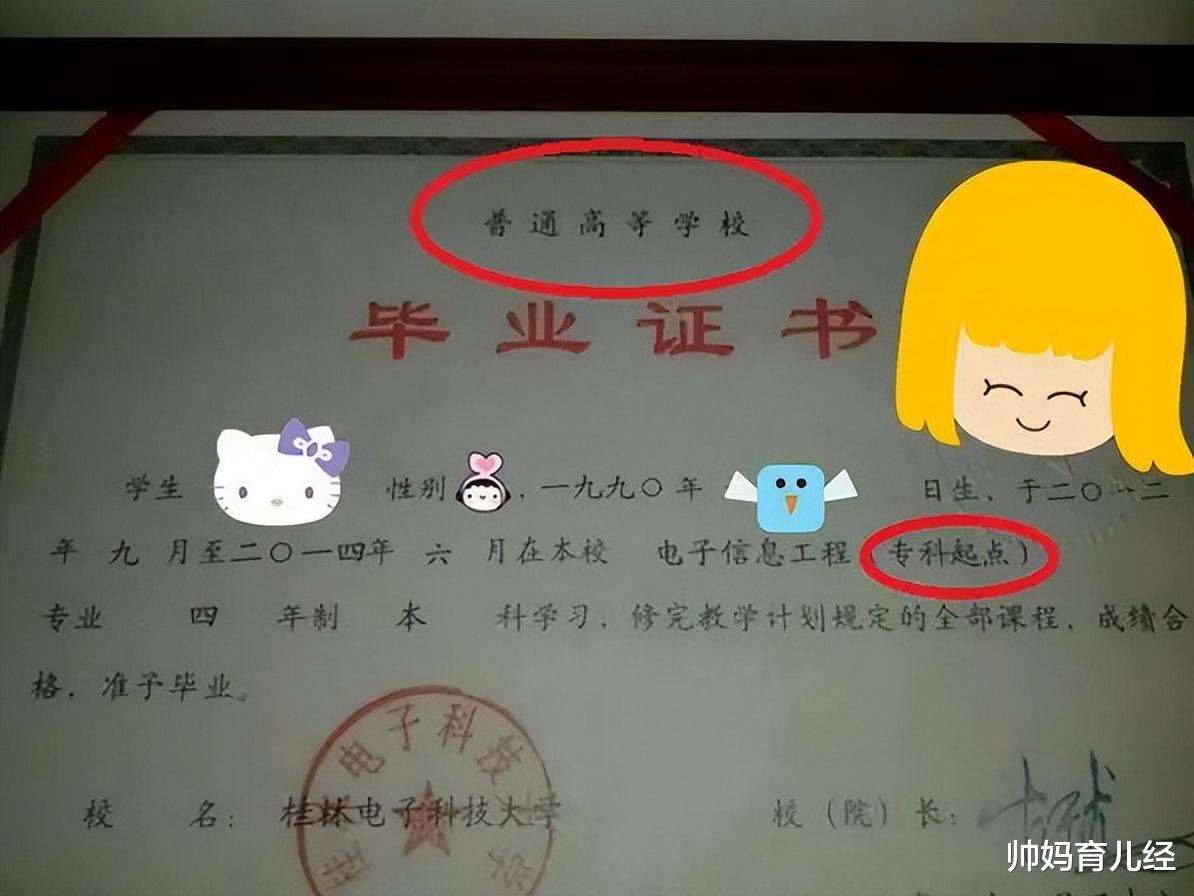 普通高等学校
毕业证书
学生 性别 ，一九九〇年 日生，于二〇一二
年 九 月至二〇一四年 六 月在本校 电子信息工程（专科起点）
专业 四 年制 本 科学习，修完教学计划规定的全部课程，成绩合
格，准予毕业。
电子科技
校 名：桂林电子科技大学 校（院）长：
帅妈育儿经